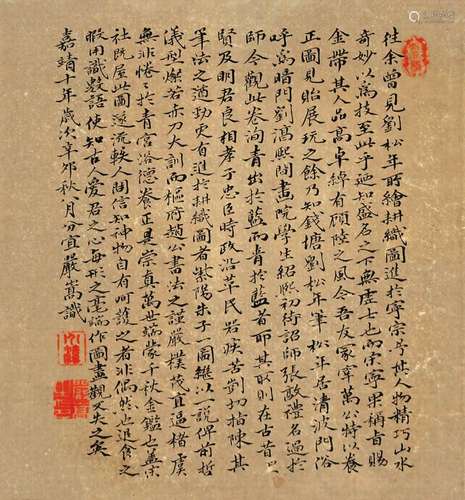 往余曾見劉松年所繪耕織圖進於寧宗号其人物精巧山水
奇妙以為技至此乎迺知盛名之下無虛士也而宋寧宗稱旨賜
金帶其人品高卓綽有顧陸之風今吾友冢宰萬公特以養
正圖見貽展玩之餘乃知錢塘劉松年筆松年居清波門俗
呼為暗門劉淳熙間畫院學生紹熙初待詔師張敦禮名過於
師今觀此卷洵青出於藍而青於藍者耶其所則在古昔
賢及明君良相孝子忠臣時政沿革民若疾苦剴切指陳其
筆法之遒勁更有進於耕織圖者紫陽朱子一圖繫以一說俾前哲
儀型燦若赤刀大訓而樞府趙公書法之謹嚴樸茂直逼楷虞
無非惓惓於青宮浴德養正是崇真萬世端蒙千秋金鑑也蓋宗
社既屋此圖遂流軼人間信知神物自有呵護之者非偶然也退食之
暇用識數語使知古人愛君之心每形之毫端作圖畫觀又失之矣
嘉靖十年歲次辛卯秋八月分宜嚴嵩識